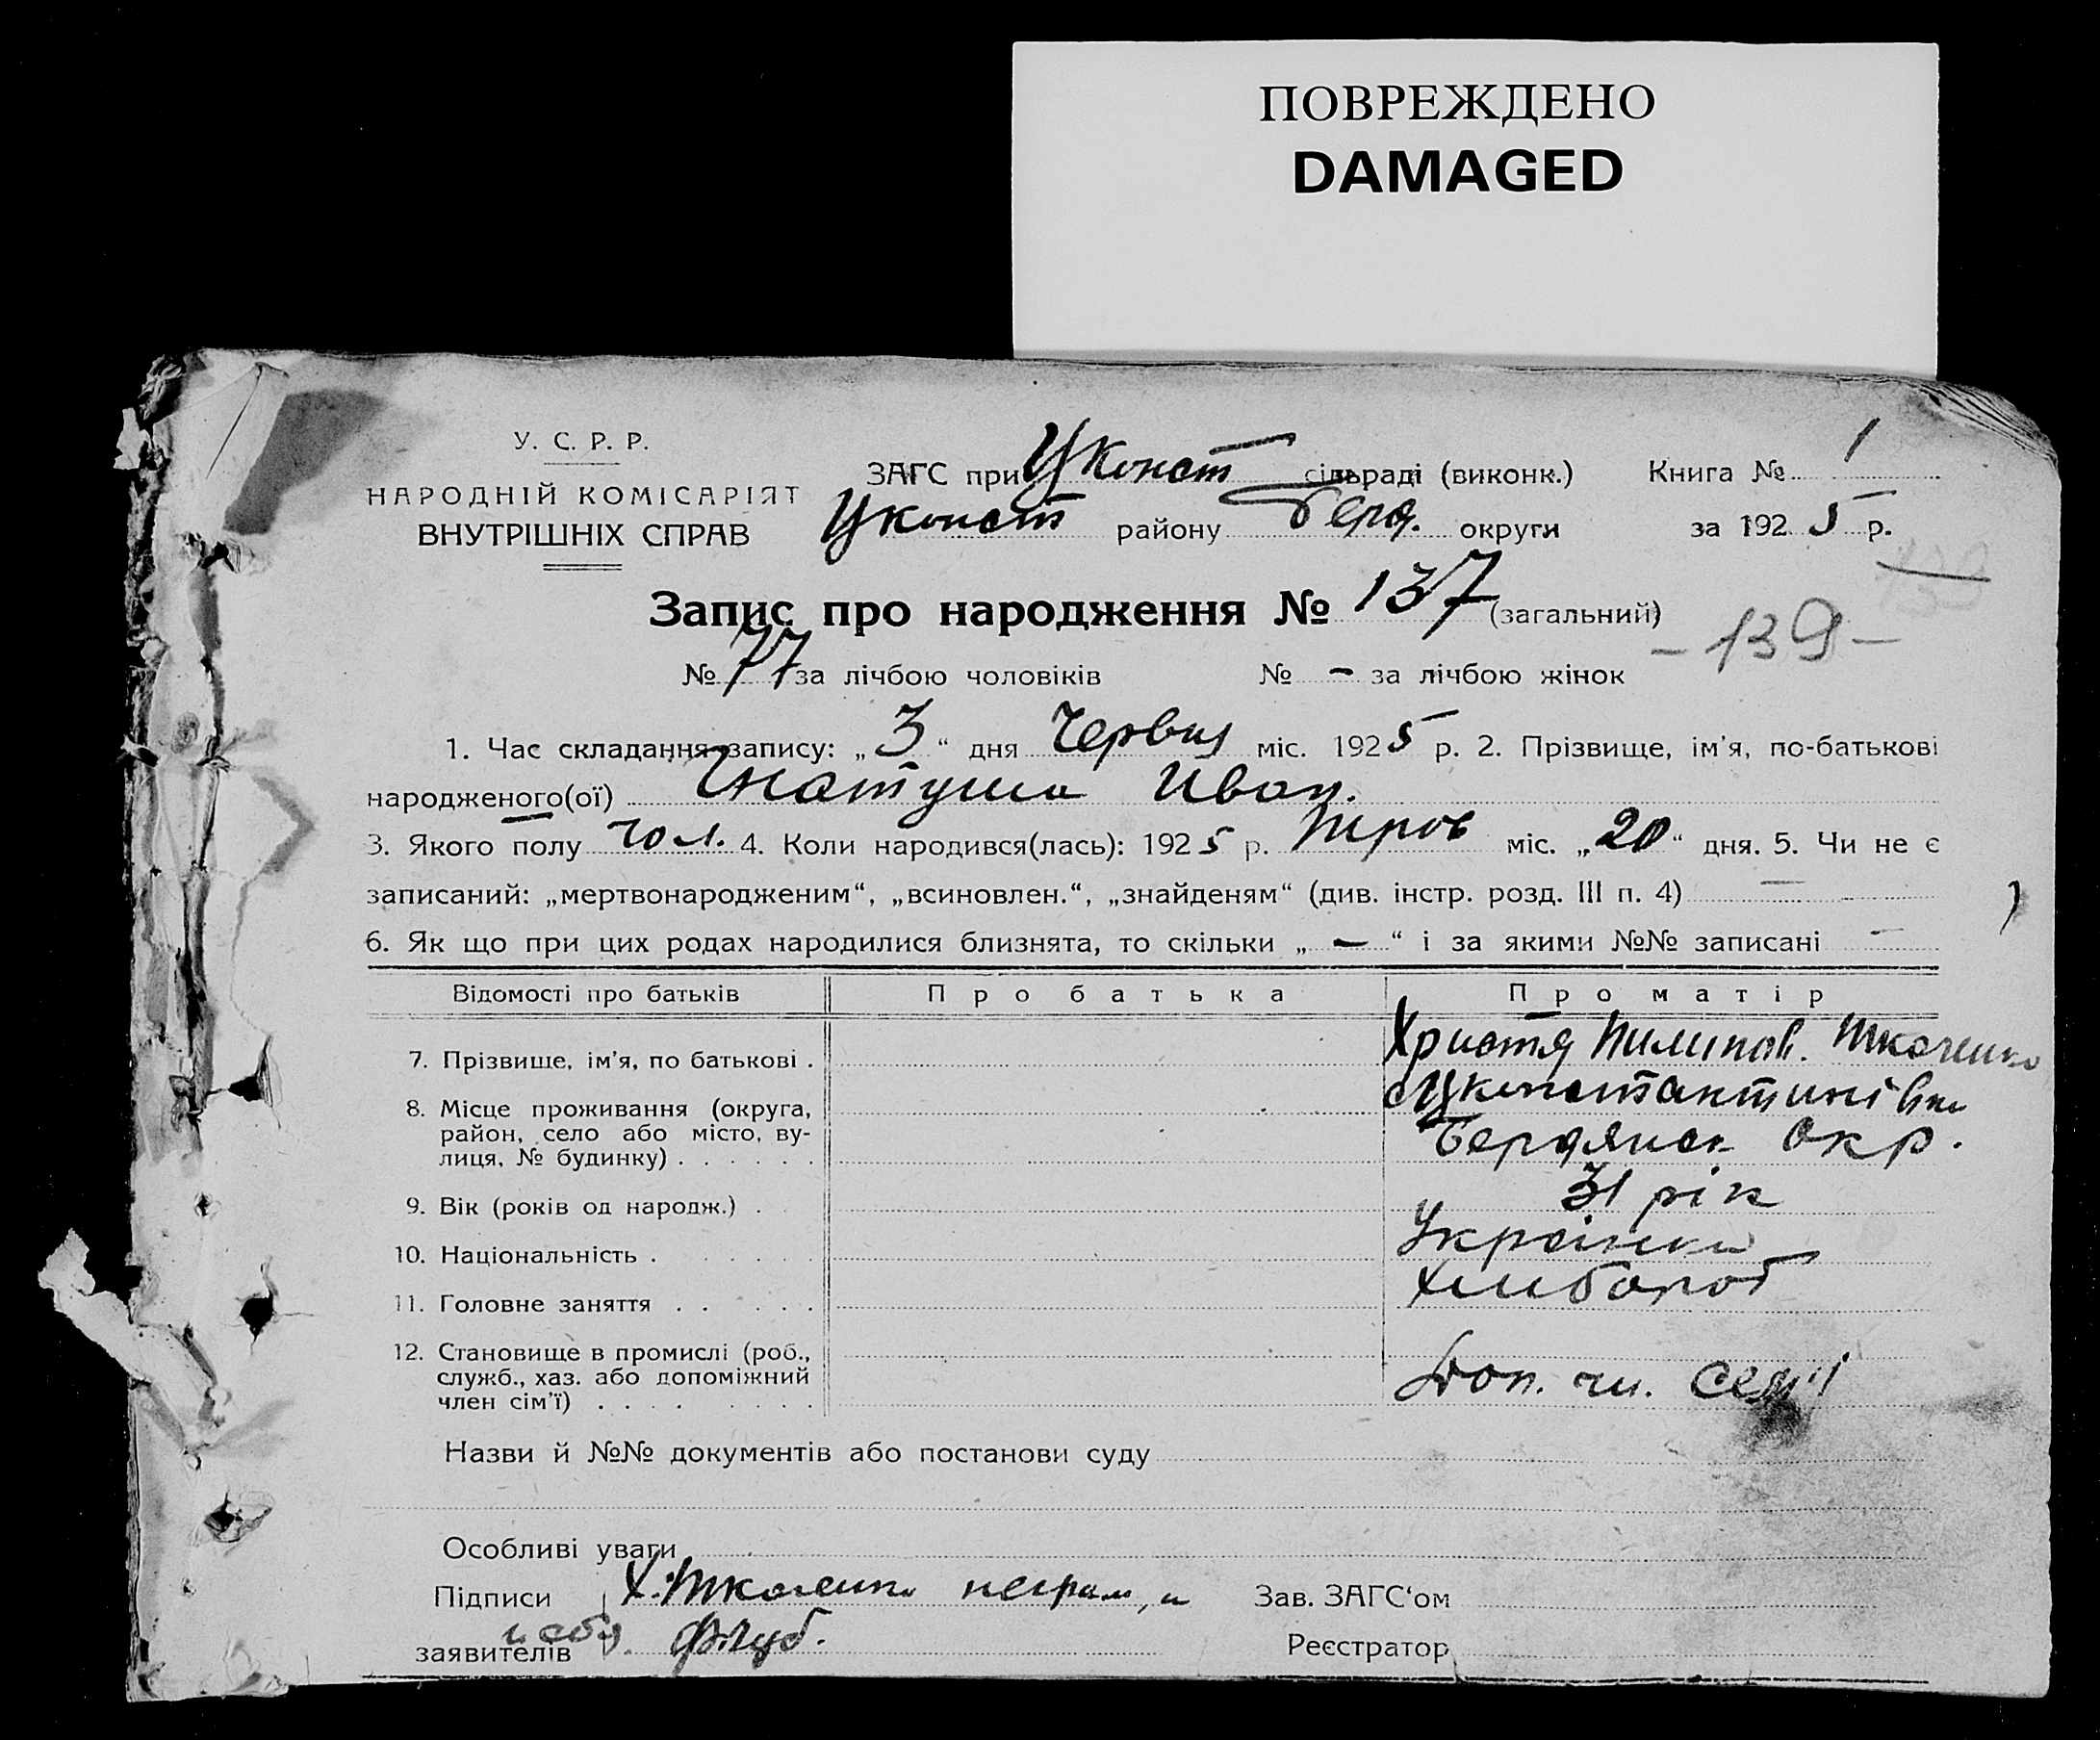 ПОВРЕЖДЕНО
DAMAGED
У. С. Р. Р.
НАРОДНІЙ КОМІСАРІЯТ
ВНУТРІШНІХ СПРАВ
ЗАГС при Цконст сільраді (виконк.) Книга № 1
Цконст району Берд. округи за 1925 р.
Запис про народження № 137 (загальний)
- 139 -
№ 77 за лічбою чоловіків № - за лічбою жінок
1. Час складання запису: „3“ дня Червня міс. 1925 р. 2. Прізвище, ім'я, по-батькові
народженого(ої) Гнатуша Иван.
3. Якого полу чол. 4. Коли народився(лась): 1925 р. міс. „20“ дня. 5. Чи не є
записаний: „мертвонародженим“, „всиновлен.“, „знайденям“ (див. інстр. розд. III п. 4) —
6. Як що при цих родах народилися близнята, то скільки „—“ і за якими №№ записані —
Відомості про батьків Про батька Про матір
7. Прізвище, ім'я, по батькові . Христя Пилипов. Ткаченко
8. Місце проживання (округа, район, село або місто, вулиця, № будинку) . . . . . . Цконстантинівки
Бердянск Окр.
9. Вік (років од народж.) . 31 рік
10. Національність . Українка
11. Головне заняття . . . . . Хлибороб
12. Становище в промислі (роб., служб., хаз. або допоміжний член сім'ї) . . . . Доп. чл. семї
Назви й №№ документів або постанови суду
Особливі уваги
Підписи Х. Ткаченко неграм, и Зав. ЗАГС'ом
заявителів Реєстратор